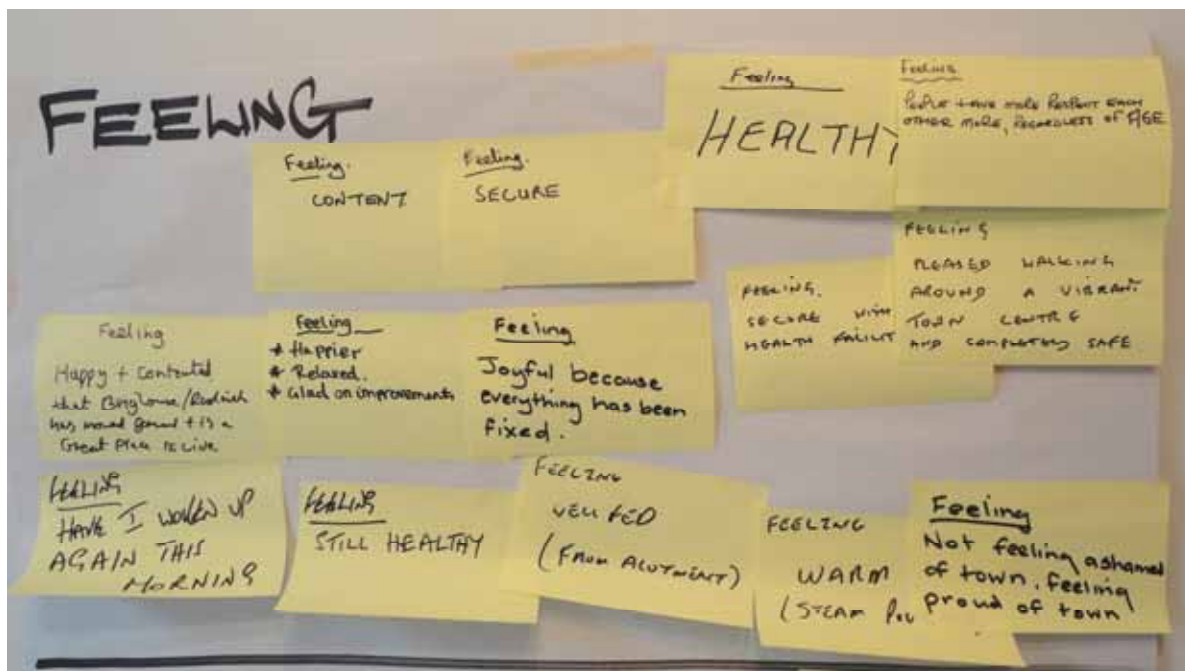 FEELING
Feeling.
CONTENT
Feeling.
SECURE
Feeling
HEALTHY
Feeling
PEOPLE HAVE MORE RESPECT EACH
OTHER MORE, REGARDLESS OF AGE
FEELING.
SECURE WITH
HEALTH FACILIT
FEELING
PLEASED WALKING
AROUND A VIBRANT
TOWN CENTRE
AND COMPLETELY SAFE
Feeling
Happy + Contented
that Brighouse/Rastrick
has moved forward + is a
Great Place to Live
Feeling
* Happier
* Relaxed.
* Glad on improvements
Feeling
Joyful because
everything has been
fixed.
FEELING
HAVE I WOKEN UP
AGAIN THIS
MORNING
FEELING
STILL HEALTHY
FEELING
WELL FED
(FROM ALOTMENT)
FEELING
WARM
(STEAM
Feeling
Not feeling ashamed
of town. feeling
proud of town